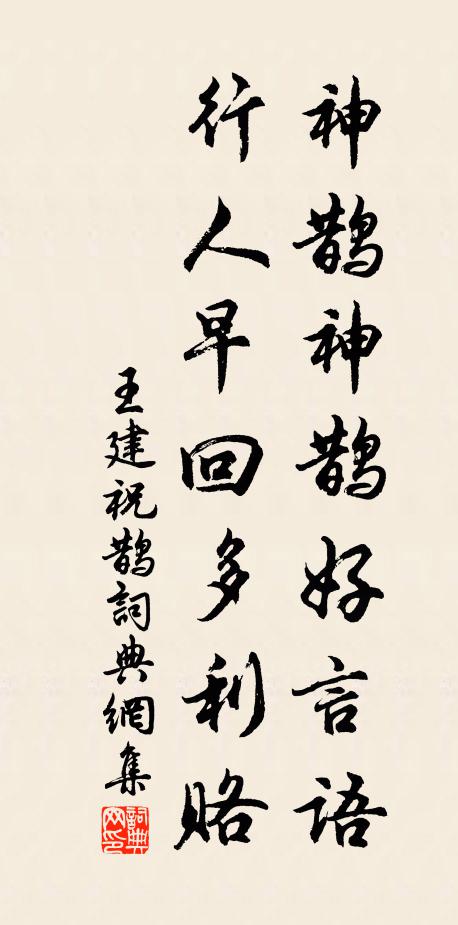 神鹊神鹊好言語
行人早回多利賂
王建祝鹊詞典網集
詞典网印